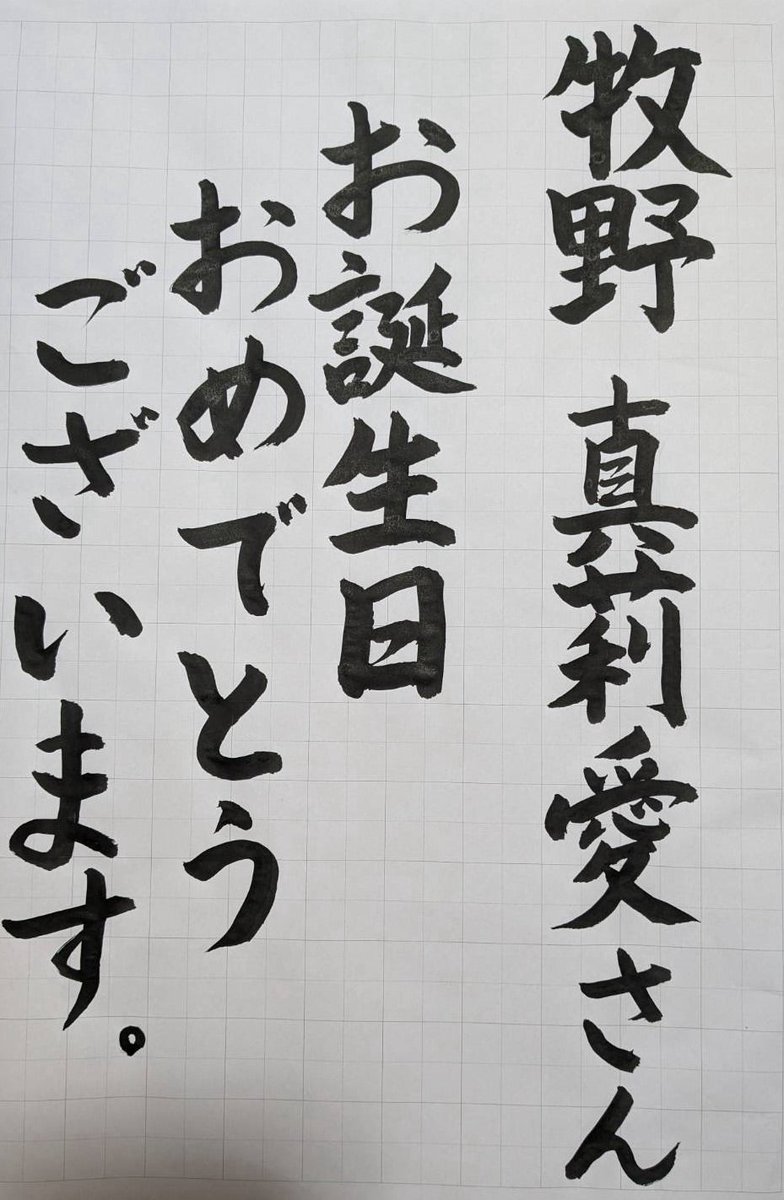 牧野 真莉愛さん
お誕生日
おめでとう
ございます。